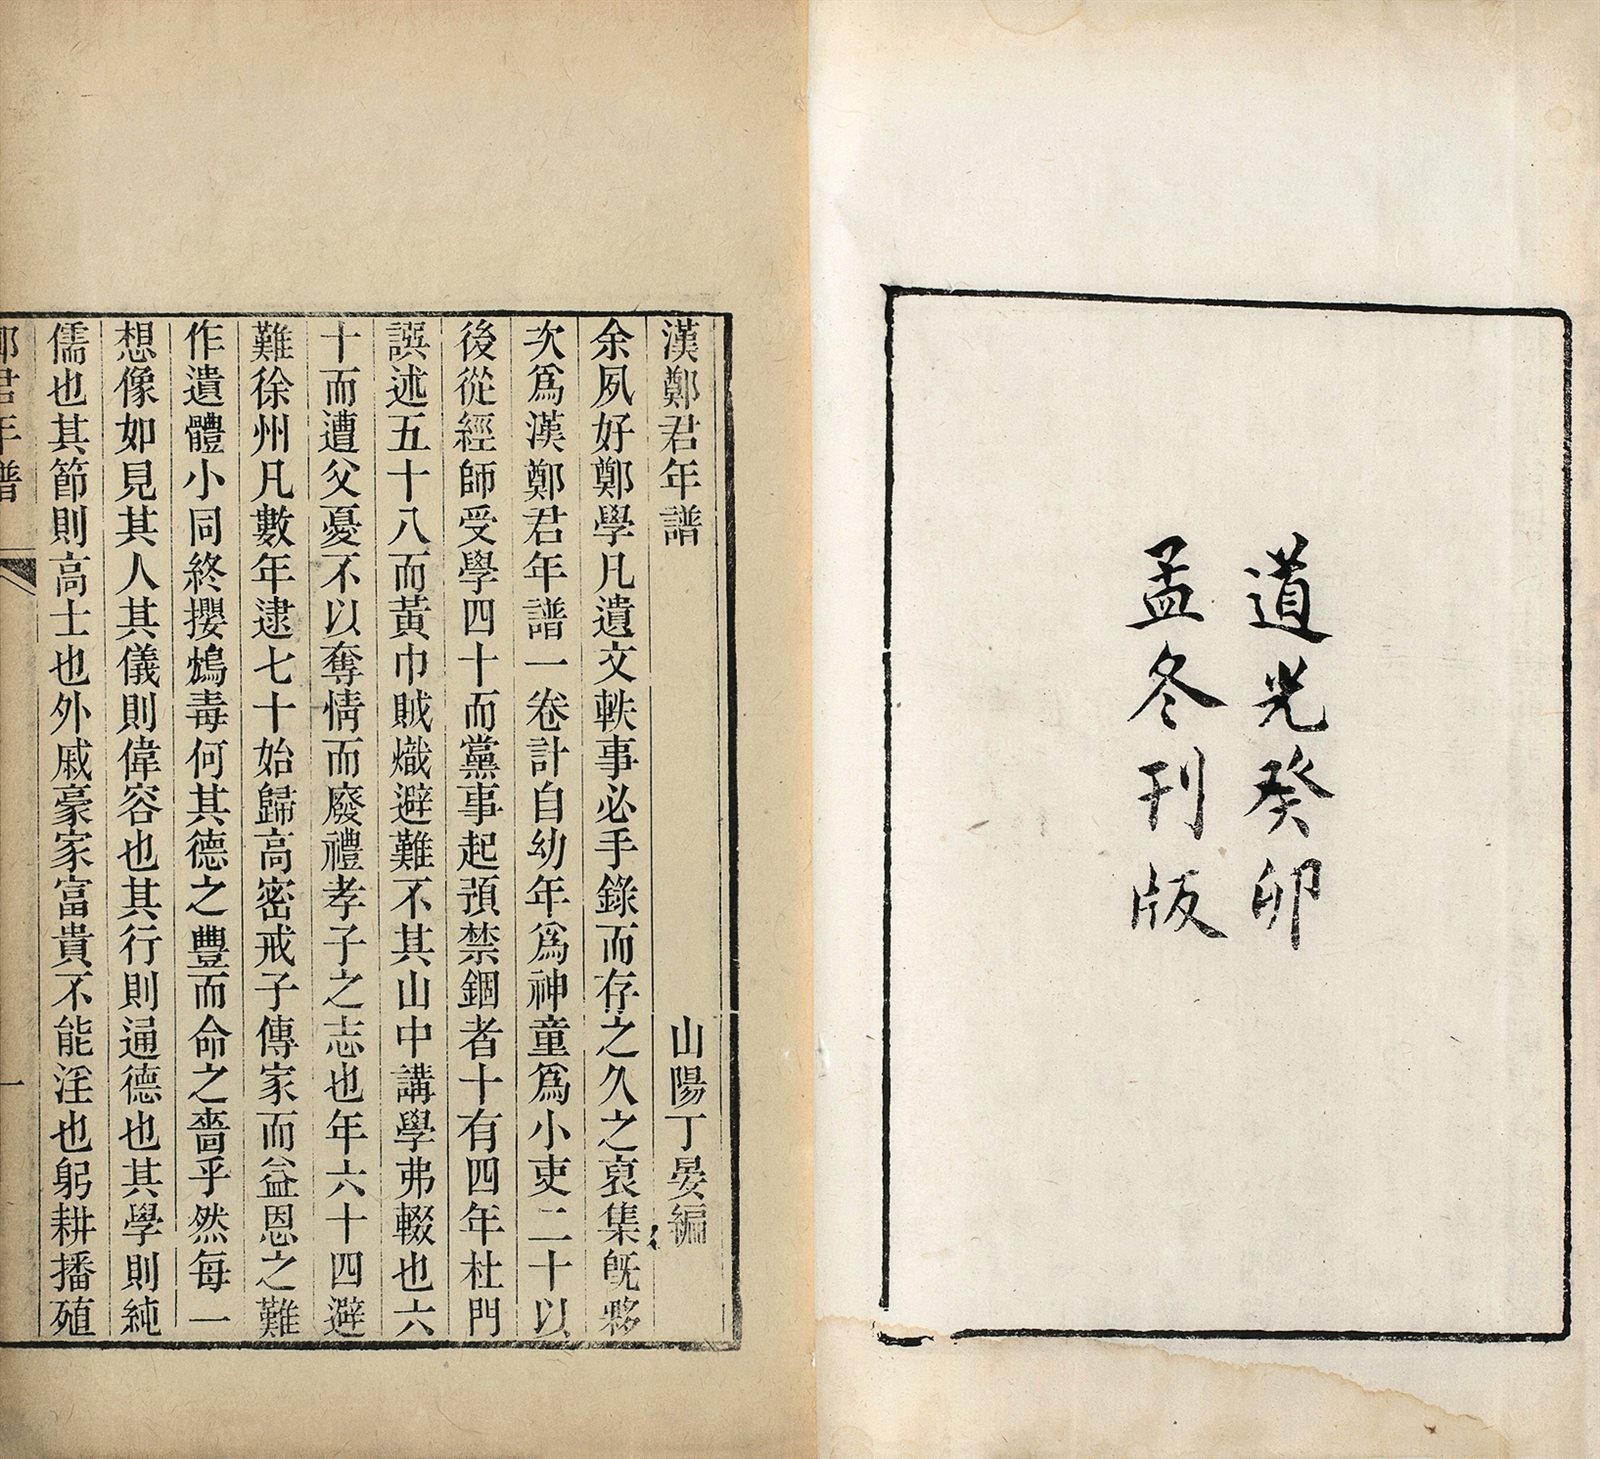 道光癸卯
孟冬刊版
漢鄭君年譜
山陽丁晏編
余夙好鄭學凡遺文軼事必手錄而存之久之裒集旣夥
次爲漢鄭君年譜一卷計自幼年爲神童爲小吏二十以
後從經師受學四十而黨事起預禁錮者十有四年杜門
譔述五十八而黃巾賊熾避難不其山中講學弗輟也六
十而遭父憂不以奪情而廢禮孝子之志也年六十四避
難徐州凡數年逮七十始歸高密戒子傳家而益恩之難
作遺體小同終攖鴆毒何其德之豐而命之嗇乎然每一
想像如見其人其儀則偉容也其行則通德也其學則純
儒也其節則高士也外戚豪家富貴不能淫也躬耕播殖
鄭君年譜
一